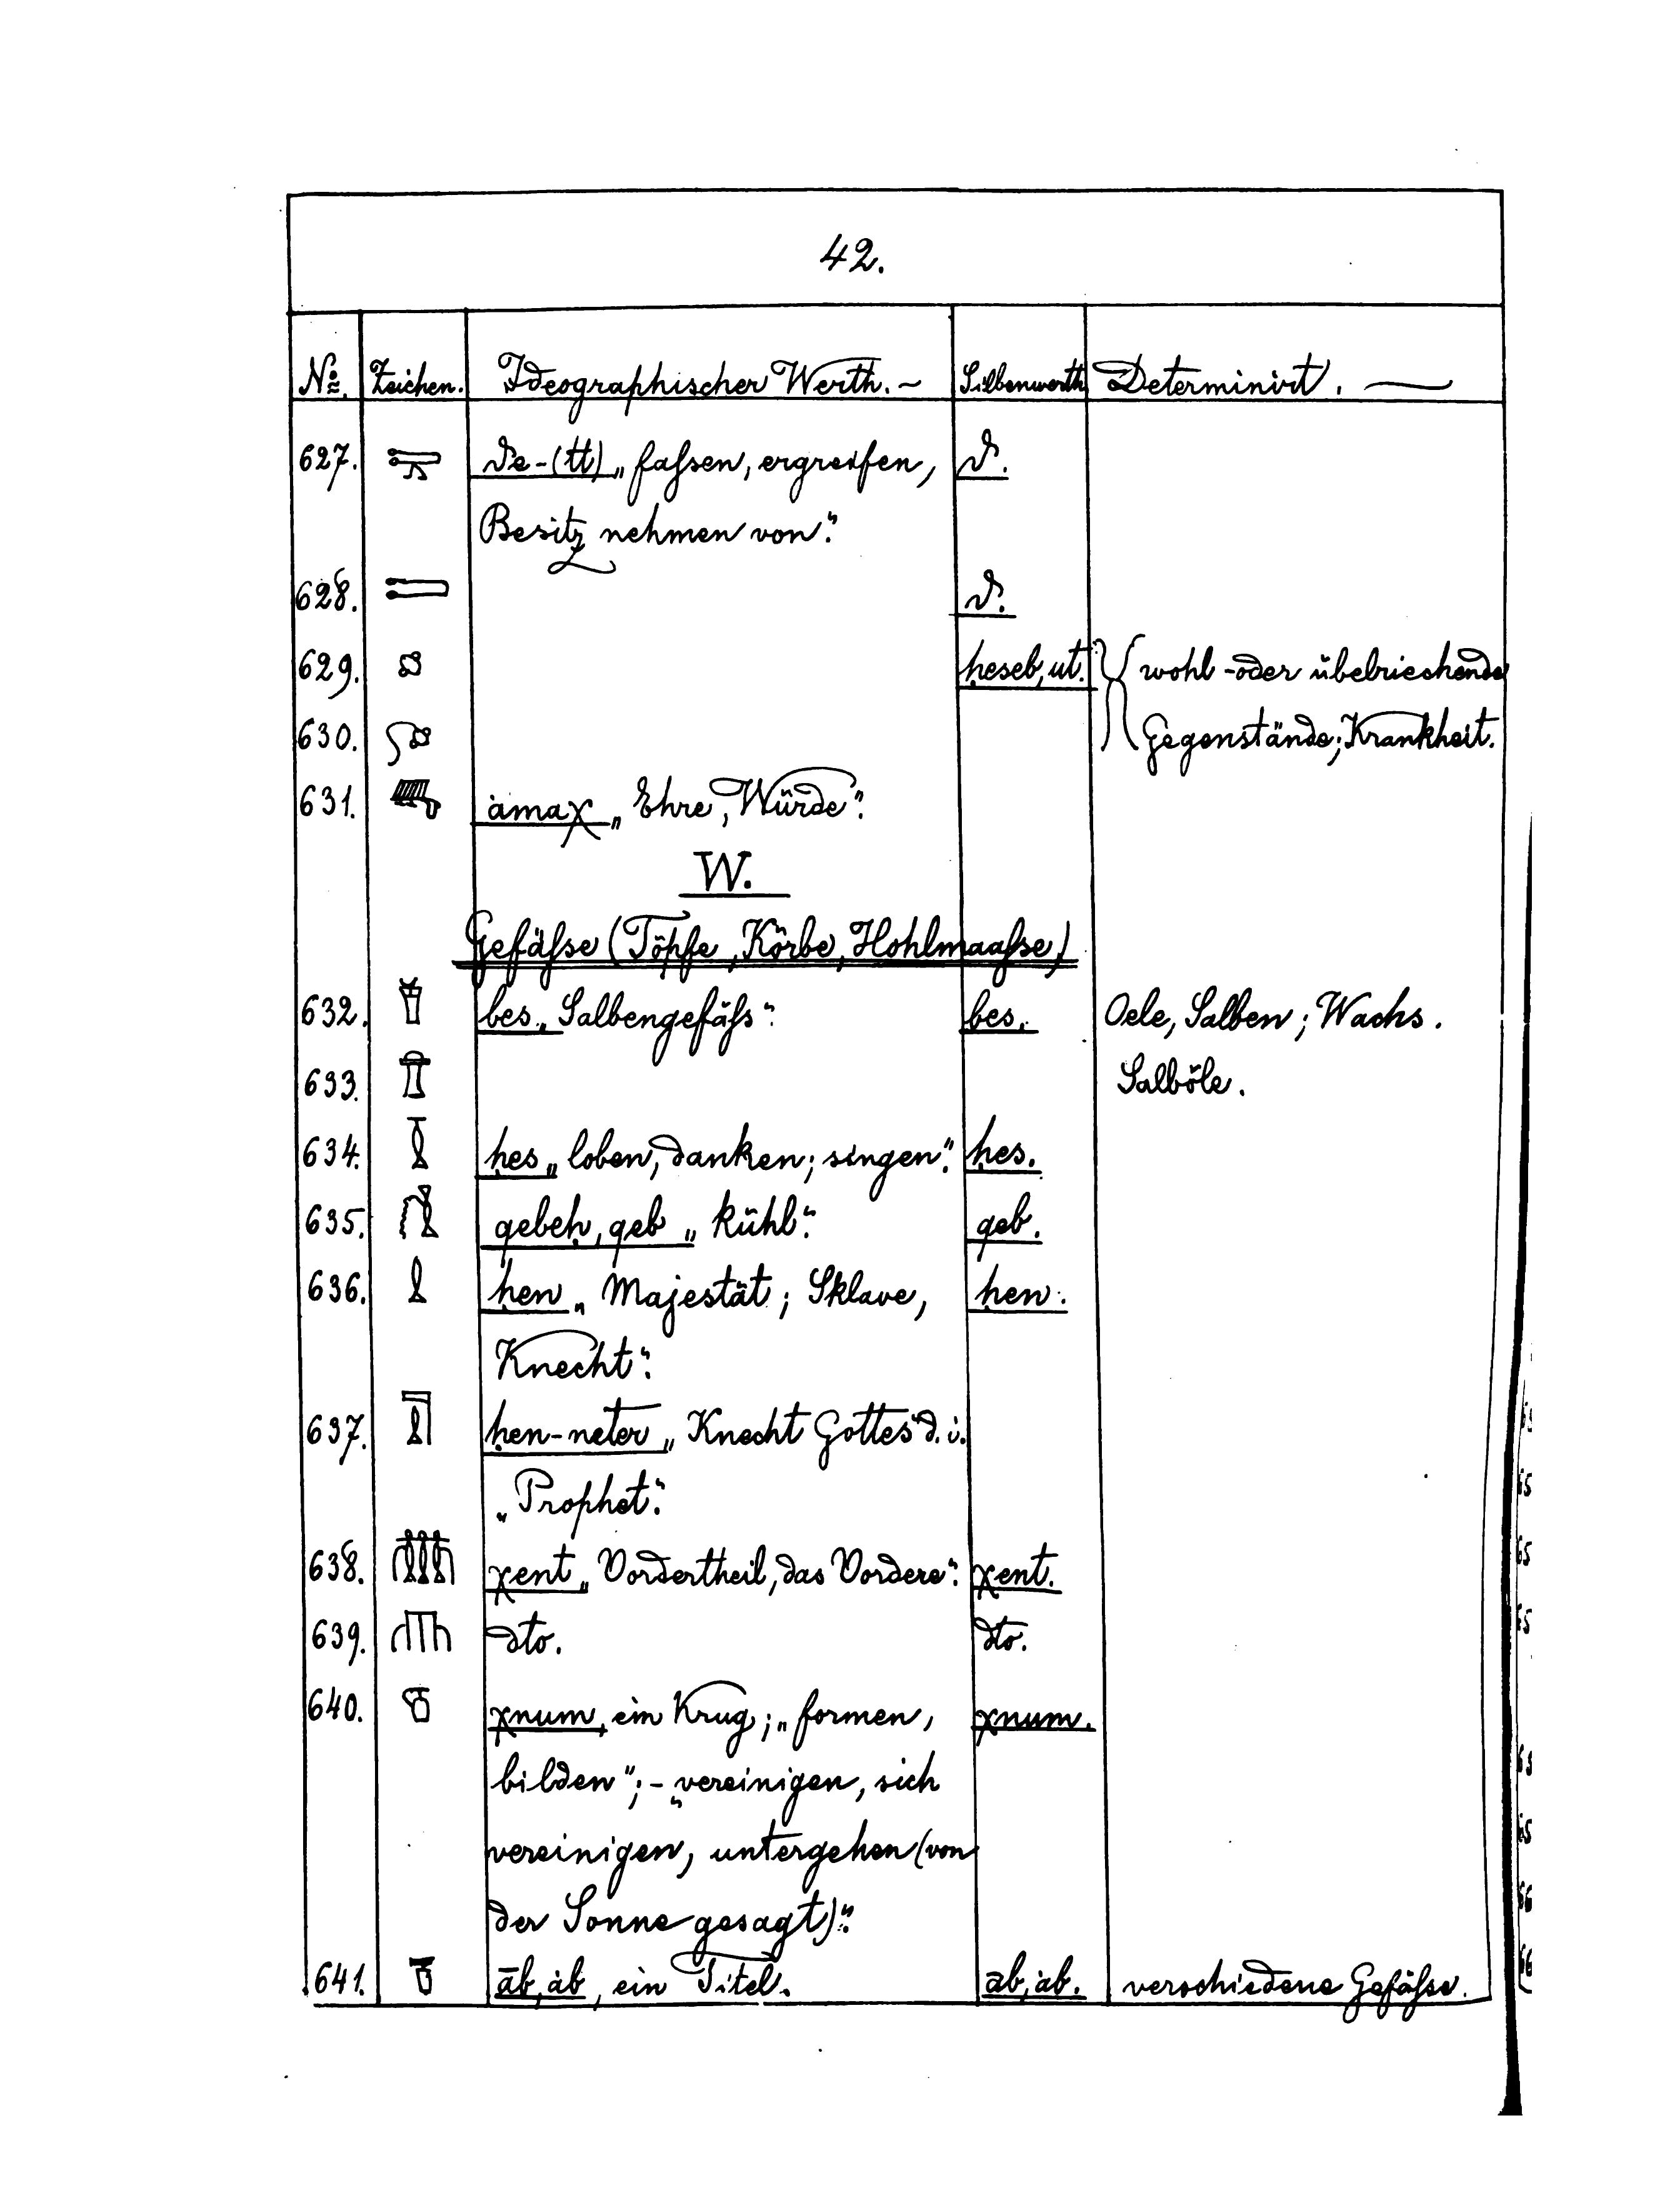 42.
No. Zeichen. Ideographischer Werth. Silbenwerth Determinirt.
627. ϑe-(tt) „fafsen, ergreifen, ϑ.
Besitz nehmen von“.
628. ϑ.
629. ḥeseb, ut. wohl-oder übelriechende
630. Gegenstände; Krankheit.
631. ȧmaχ „Ehre, Würde“.
W.
Gefäfse (Töpfe, Körbe, Hohlmaafse)
632. bes „Salbengefäfs“. bes. Oele, Salben; Wachs.
633. Salböle.
634. ḥes „loben, danken; singen“. ḥes.
635. qebeḥ, qeb „kühl“. qeb.
636. ḥen „Majestät; Sklave, ḥen.
Knecht“.
637. ḥen-neter „Knecht Gottes“ d. i.
„Prophet“.
638. χent „Vordertheil, das Vordere“. χent.
639. dto. dto.
640. χnum, ein Krug; „formen, χnum.
bilden“; - „vereinigen, sich
vereinigen, untergehen (von
der Sonne gesagt)“.
641. āb, ȧb, ein Titel. āb, ȧb. verschiedene Gefäfse.